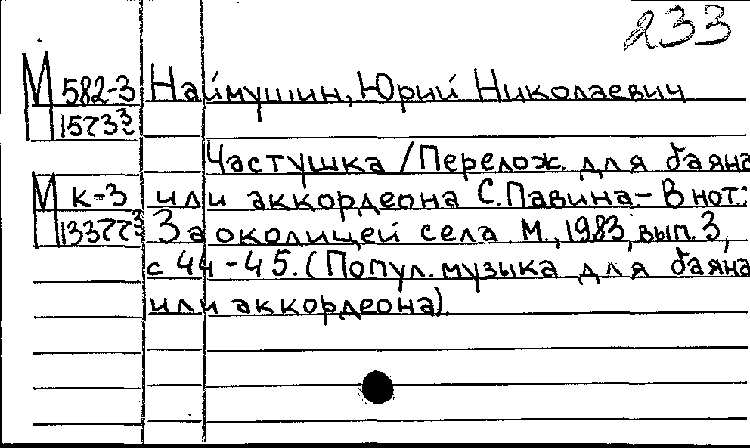 233
М 582-3 Наймушин, Юрий Николаевич
15733
Частушка / Перелож. для баяна
М к-3 или аккордеона С. Павина.- В нот.:
За околицей села М., 1983, вып. 3,
с 44-45. (Попул. музыка для баяна
или аккордеона)